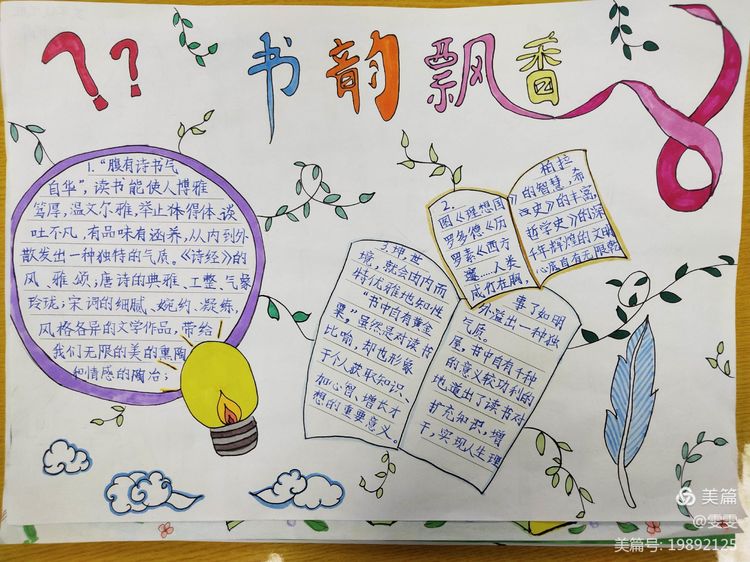 ？？
书韵飘香
1.“腹有诗书气
自华”，读书能使人博雅
笃厚，温文尔雅，举止体得体，谈
吐不凡，有品味有涵养，从内到外
散发出一种独特的气质。《诗经》的
风、雅、颂；唐诗的典雅、工整、气象
玲珑；宋词的细腻、婉约、凝练，
风格各异的文学作品，带给
我们无限的美的熏陶
和情感的陶冶；
2.
图《理想国
罗多德《历
罗素《西方
蕴……人类
成竹在胸，
柏拉
》的智慧，希
史》的丰富，
哲学史》的深
千年辉煌的文明
心底自有无限乾
3.坤，世
境，就会由内而
特优雅地知性
“书中自有黄金
粟”，虽然是对读书
比喻，却也形象
于个人获取知识、
加心智、增长才
想的重要意义。
事了如明
外溢出一种独
气质。
屋，书中自有千种
的意义较功利的
地道出了读书对
扩充知识，增
干，实现人生理
美篇
@雯雯
美篇号: 19892125